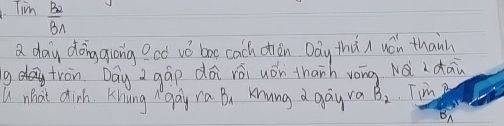 Tìm B2/B1
2 dây đồng giống có vỏ bọc cách điện Dây thứ 1 uốn thành
g tròn. Dây 2 gấp đôi rồi uốn thành vòng Nối 2 đầu
nhất định. Khung 1 gây ra B1 Khung 2 gây ra B2. Tìm B2/B1